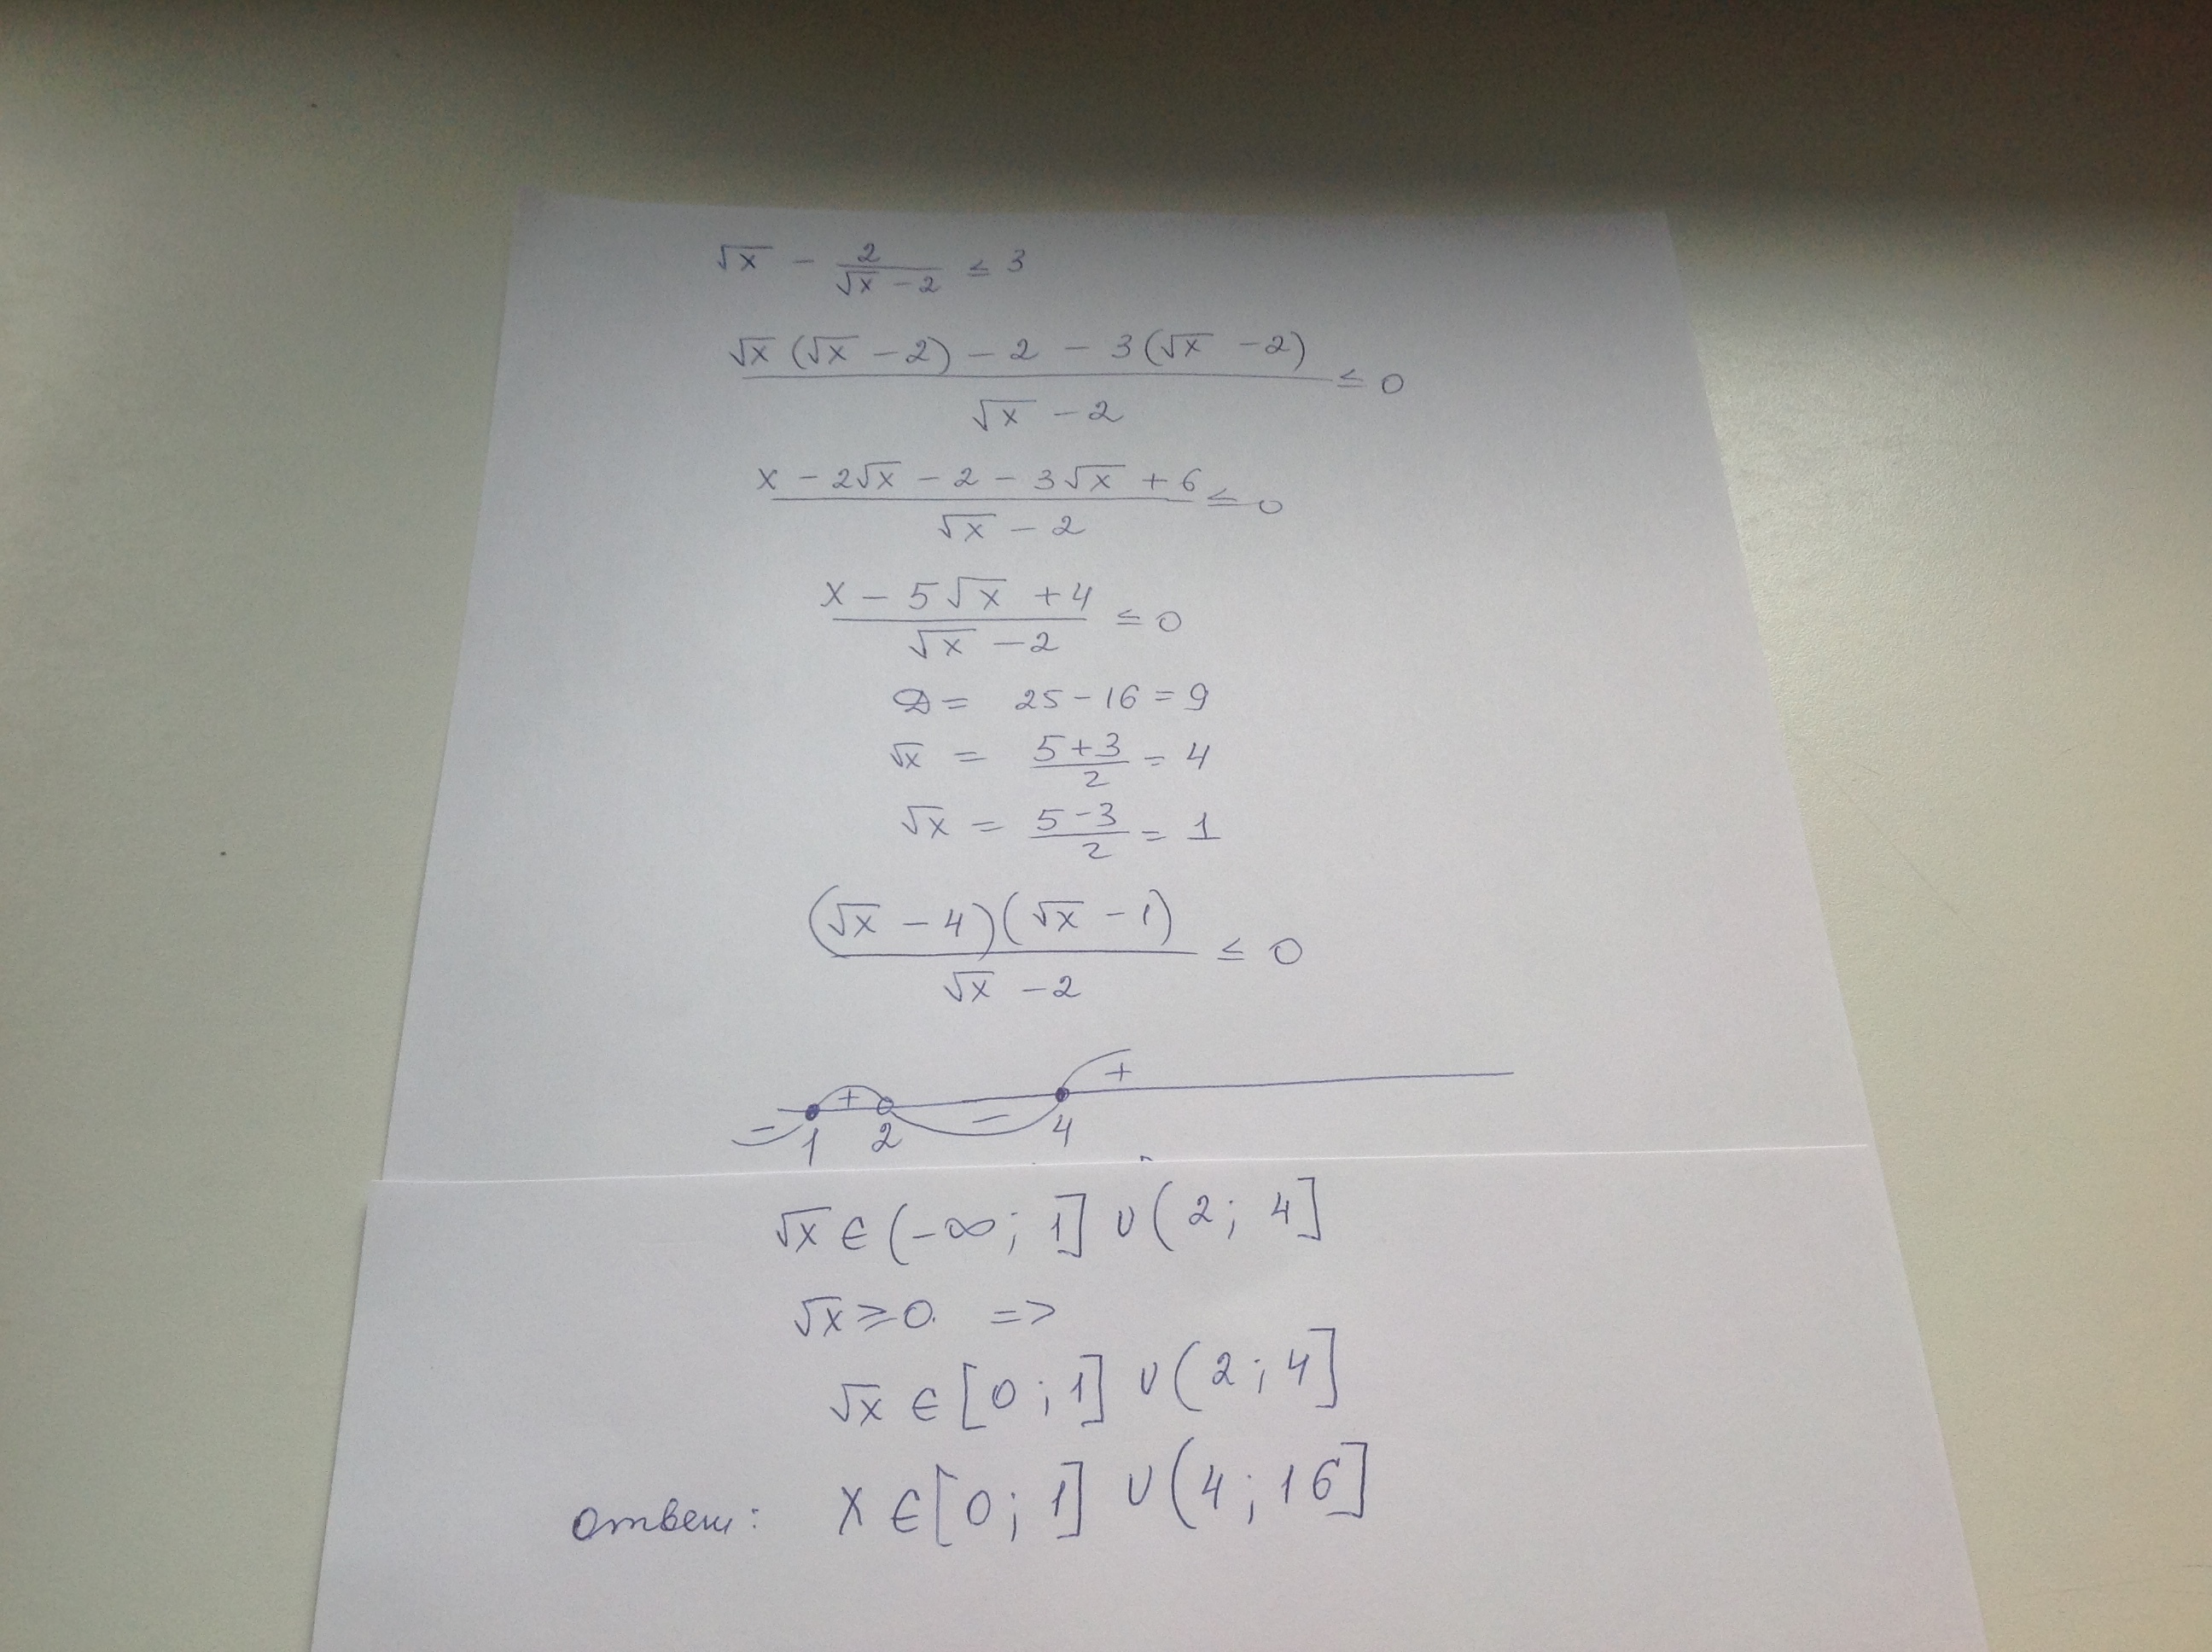 √x - 2/(√x - 2) ≤ 3
(√x (√x - 2) - 2 - 3(√x - 2))/(√x - 2) ≤ 0
(x - 2√x - 2 - 3√x + 6)/(√x - 2) ≤ 0
(x - 5√x + 4)/(√x - 2) ≤ 0
D = 25 - 16 = 9
√x = (5+3)/2 = 4
√x = (5-3)/2 = 1
((√x - 4)(√x - 1))/(√x - 2) ≤ 0
- + - +
1 2 4
√x ∈ (-∞; 1] ∪ (2; 4]
√x ≥ 0. =>
√x ∈ [0; 1] ∪ (2; 4]
Ответ: x ∈ [0; 1] ∪ (4; 16]